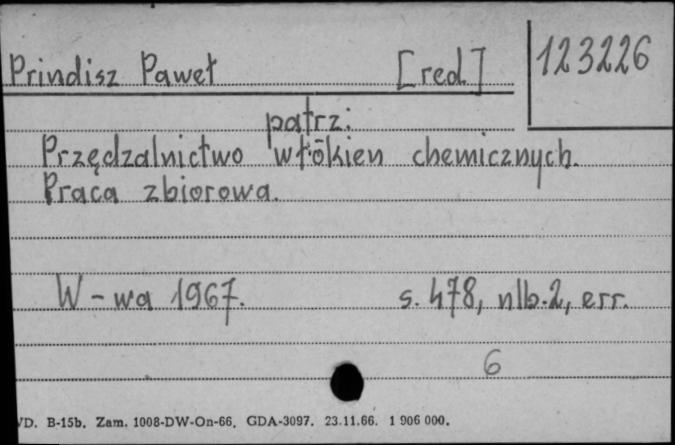 Prindisz Paweł [red.] 123226
patrz:
Przędzalnictwo włókien chemicznych.
Praca zbiorowa.
W-wa 1967. s. 478, nlb. 2, err.
6
VD. B-15b. Zam. 1008-DW-On-66. GDA-3097. 23.11.66. 1 906 000.